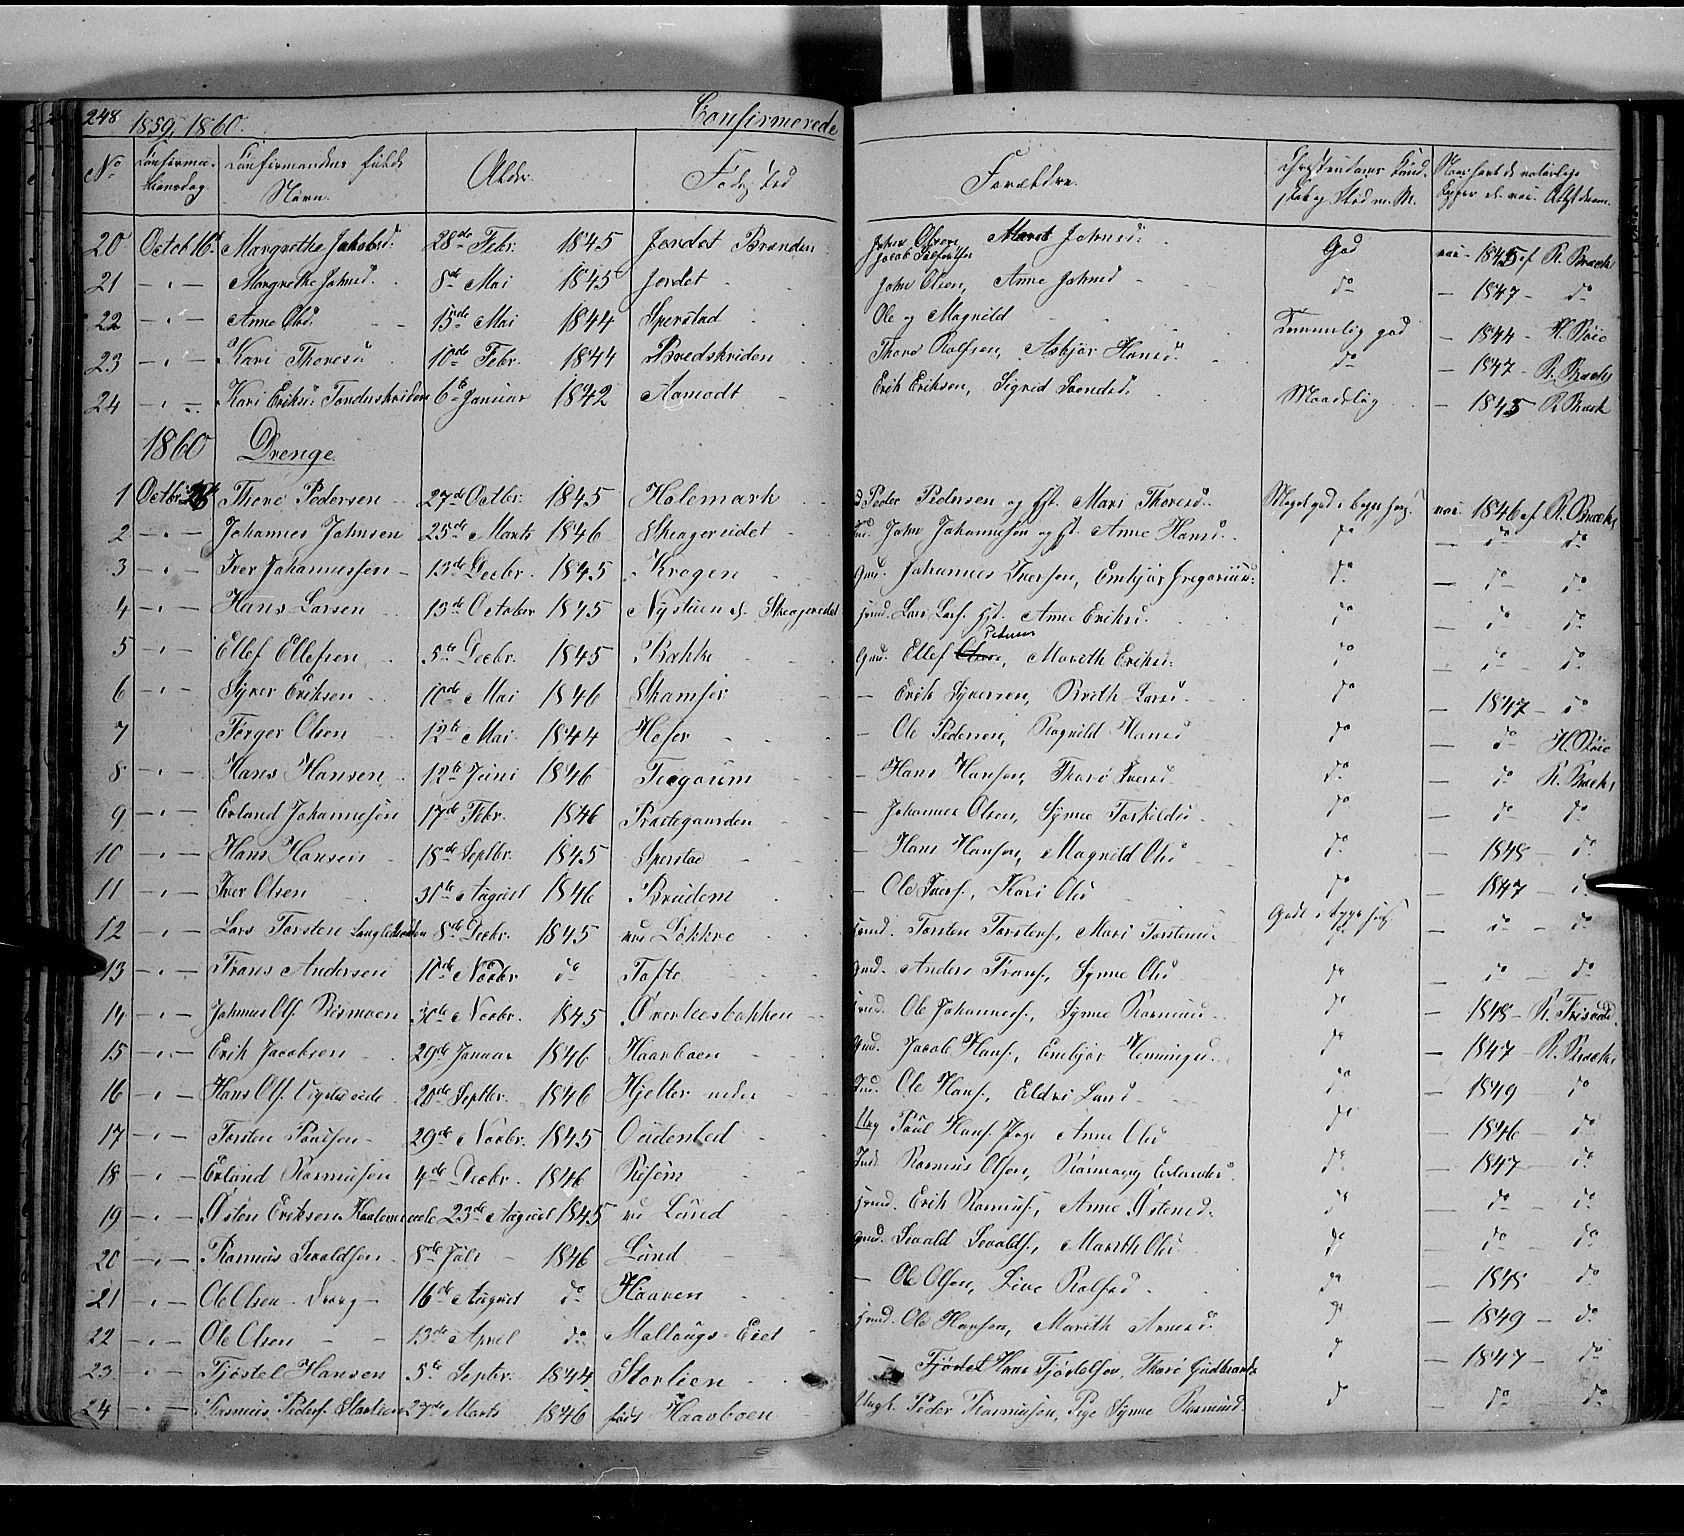 248 1859, 1860. Confirmerede
No Confirmationsdag Confirmandens fulde Navn. Alder. Fødested Forældre. Christendoms Kundskab og Sted m. M. Naar havt de naturlige Kopper el. vac. Attst deom.
20 Octob 16. Margrethe Jakobsd: 28de Febr. 1845 Jordet Brænden Jacob Marit Johnsd: God vac 1845 af R. Bræk
21 - " - Margrethe Johnsd. 8de Mai 1845 Jordet John Olsen, Anne Johnsd do - 1847 - do
22 - " - Anne Olsd. 15de Mai 1844 Sperstad Ole og Magnild Temmelig god - 1844 - H. Röie
23 - " - Kari Thoresd 10de Febr. 1844 Bredskriden Thore Rolfsen, Asbjør Hansd. do - 1847 - R. Bræk
24 - " - Kari Eriksd: 6te Januar 1842 Aamodt Erik Eriksen, Sigrid Maadelig - 1845 R. Bræk
1860 Drenge
1 Octbr: Thore Pedersen 27de Octbr. 1845 Holemark Peder Pedersen og Hst. Mari Thoresd. Meget god i begge hens. vac. 1846 af R. Bræk
2 - " - Johannes Johnsen 25de Marts 1846 Skiageridet John Johannesen og Hst. Anne Hansd. do - do do
3 - " - Iver Johannessen 13de Decbr. 1845 Krogen Gmd. Johannes Iversen, Embjør Gregoriusd: do - do do
4 - " - Hans Larsen 13de October 1845 Nystuen u. Skiageridet Lars Larss. Hst. Anne Eriksd. do - do do
5 - " - Ellef Ellefsen 5te Decbr. 1845 Bakke Gmd. Ellef Pedersen, Marith Eriksd. do - do do
6 - " - Syver Eriksen 10de Mai 1846 Skamfer - Erik Syversen, Brith Larsd. do - 1847 - do
7 Torger Olsen 12te Mai 1844 - Ole Pedersen, Ragnild Hansd do - do H. Röie
8 - " - Hans Hansen 12te Juni 1846 - Hans Hansen, Thorø Iversd. do - do R. Bræk
9 - " - Erland Johannesen 17de Febr. 1846 Præstegaarden - Johannes Olsen, Synne Torkildsd. do - do do
10 - " - Hans Hansen 18de Septbr. 1845 Sperstad - Hans Hansen, Magnild Olsd do - 1848 - do
11 - " - Iver Olsen 31te August 1846 Bruden - Ole Iverss., Kari Olsd do - 1847 -
12 - " - Lars Torsten 8de Decbr. 1845 Løkkre Torsten Torstens., Mari Torstensd. Godt i begge hens. - do - do
13 - " - Frans Andersen 10de Novbr do Tofte Gmd. Anders Frans., Synne Olsd do - do - do
14 - " - Johannes Ols. Rosmoen 30te Novbr. 1845 Øverleesbakken Ole Johanness., Synne Rasmusd. do - 1848 - R.
15 - " - Erik Jacobsen 29de Januar 1846 Haavboen Gmd. Jacob Hans., Embjør Hemmingsd. do - 1847 - R. Bræk
16 - " - Hans Ols. 20de Septbr. 1846 Hjelter nedre Ind. Ole Hans., Eldri Larsd do - 1849 do
17 - " - Torsten Poulsen 29de Novbr. 1845 Oudensted Ung Poul Hans. Pige Anne Olsd do - 1846 - do
18 - " - Erland Rasmusen 4de Decbr. 1846 Risem Ind. Rasmus Olsen, Erlandsd. do - 1847 - do
19 - " - Østen Eriksen 23de August 1845 Lund Erik Rasmus., Anne Østensd. do - do do
20 - " - Rasmus Sevaldsen 8de Juli 1846 Lund Gmd. Sevald Sevalds., Marith Olsd. do - do do
21 - " - Ole Olsen 16de August do Haaven - Ole Olsen, Live Rolfsd do - 1848 do
22 - " - Ole Olsen 13de April do Mollaugs-Eiet Ole Hansen, Marith Arnesd. do - 1849 do
23 " - Tjøstel Hansen 5te Septbr. 1844 Storlien - Hans Tjøstelsen, Thorø Gudbrandsd do - 1847 - do
24 - " - Rasmus Peders. Storlien 27de Marts 1846 født Haavboen Ungk. Peder Rasmusen, Pige Synne Rasmusd do - do do